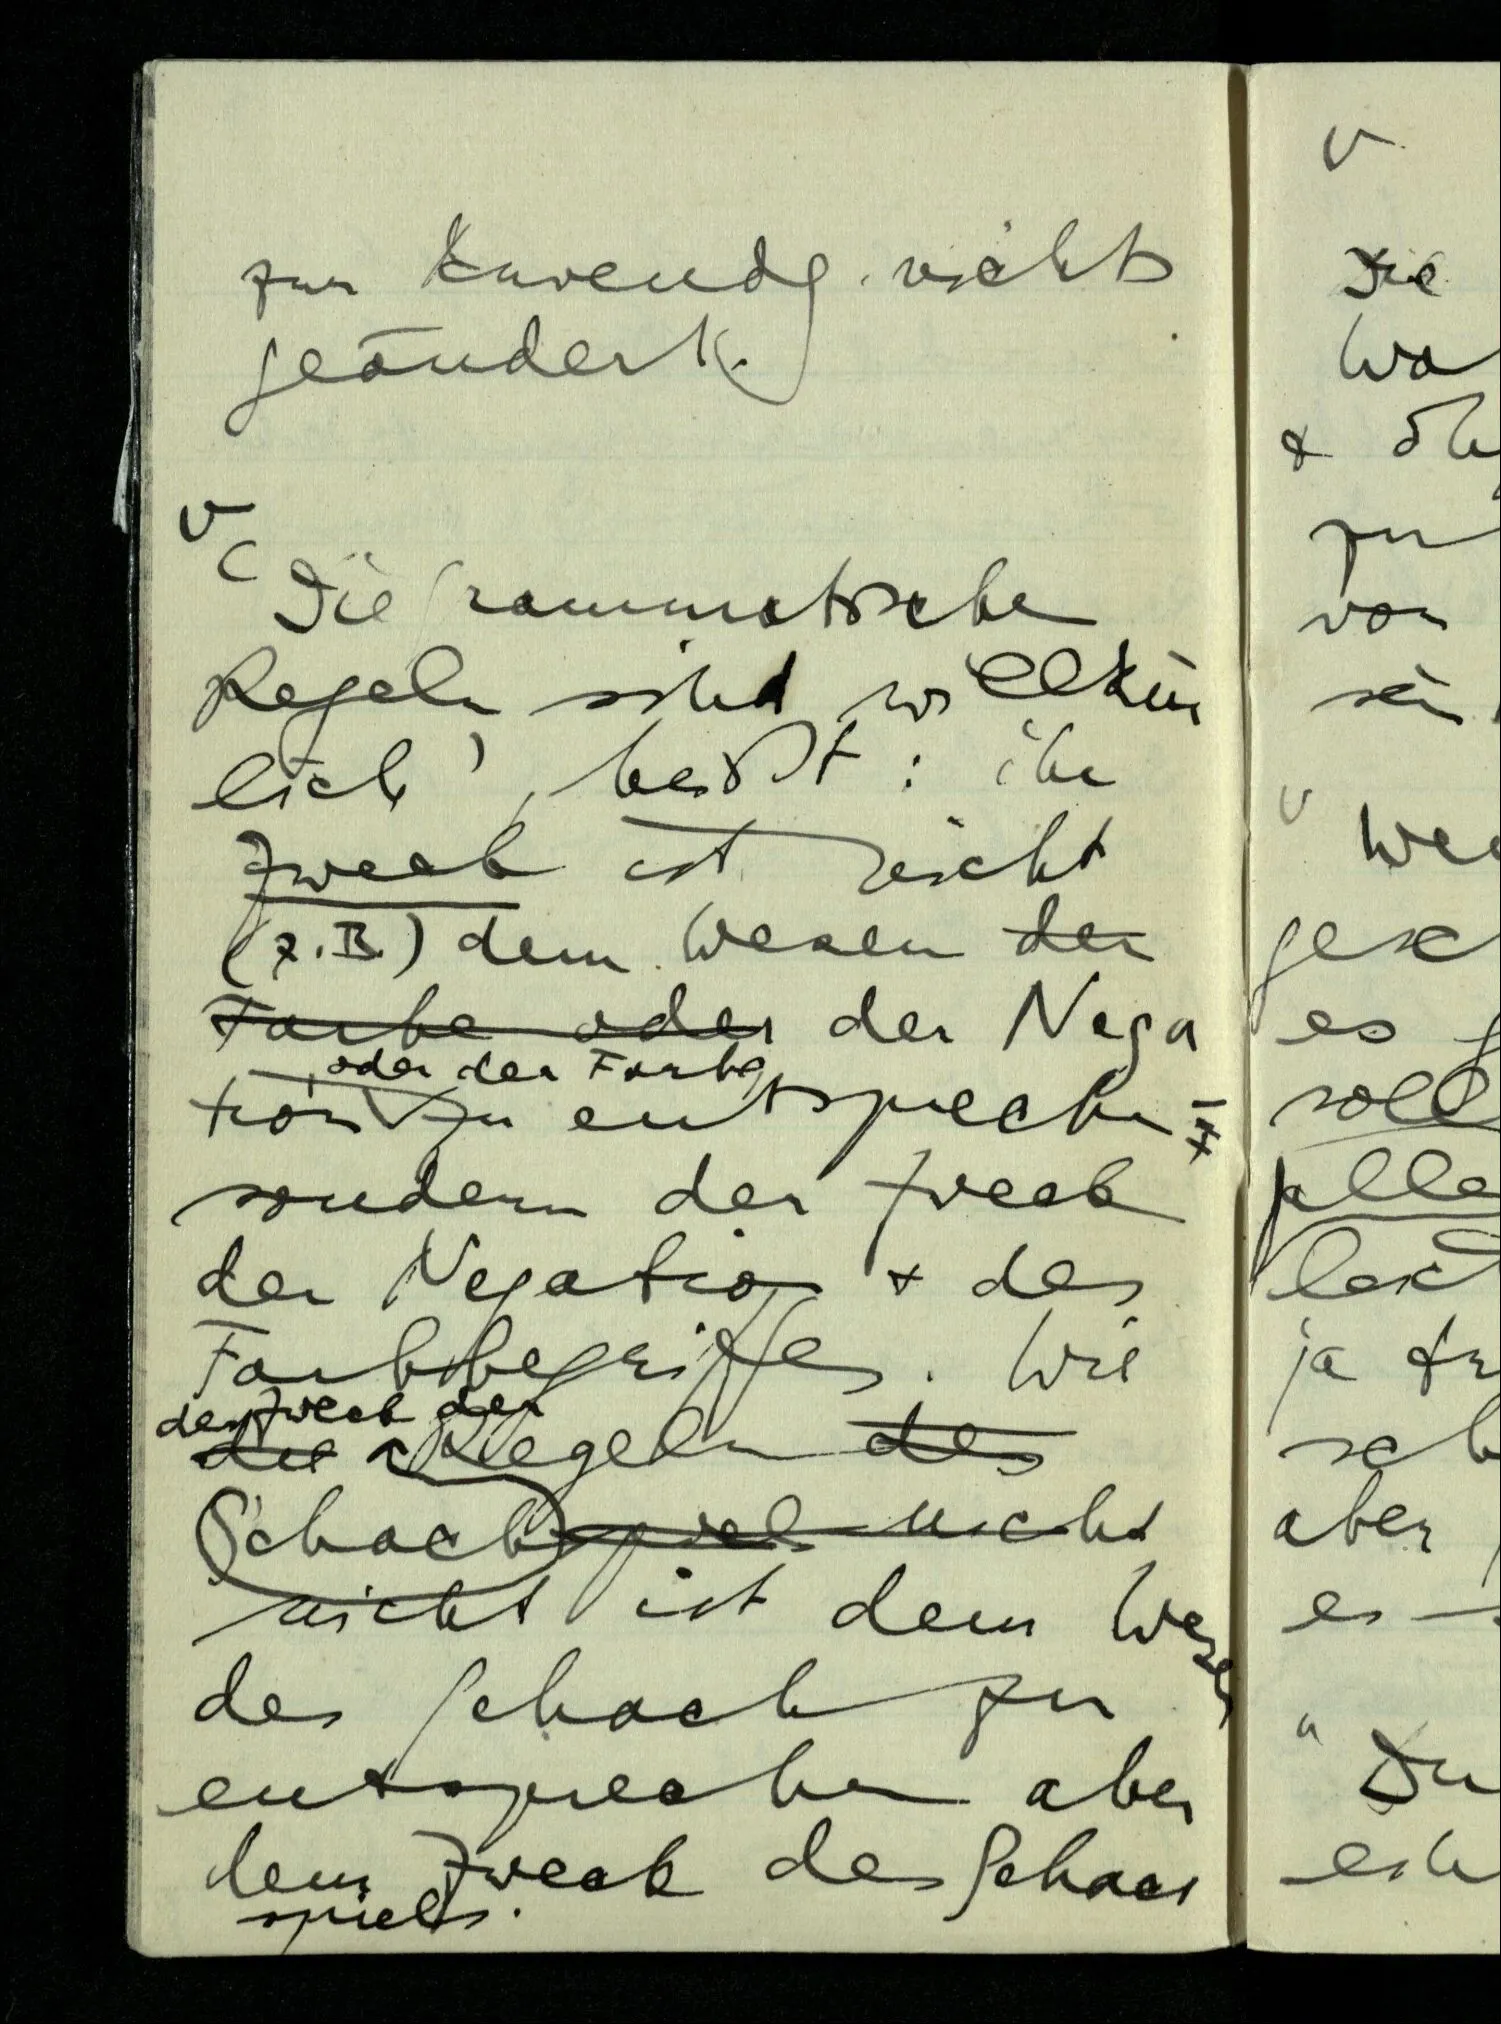 zur Anwendg. nichts
geändert.
∪
C Die grammatische
Regeln sind willkür
lich', heißt: ihr
Zweck ist nicht
(z.B.) dem Wesen der
Farbe oder der Nega
oder der Farbe
tion zu entsprechen
sondern der Zweck
der Negation & des
Farbbegriffes. Wie
der Zweck der
die Regeln des
Schachspiel nicht
nicht ist dem Wesen
des Schach zu
entsprechen aber
dem Zweck des Schach
spiels.
∪
Die
& 
zu
von
∪
es
soll
ja
aber
es
"